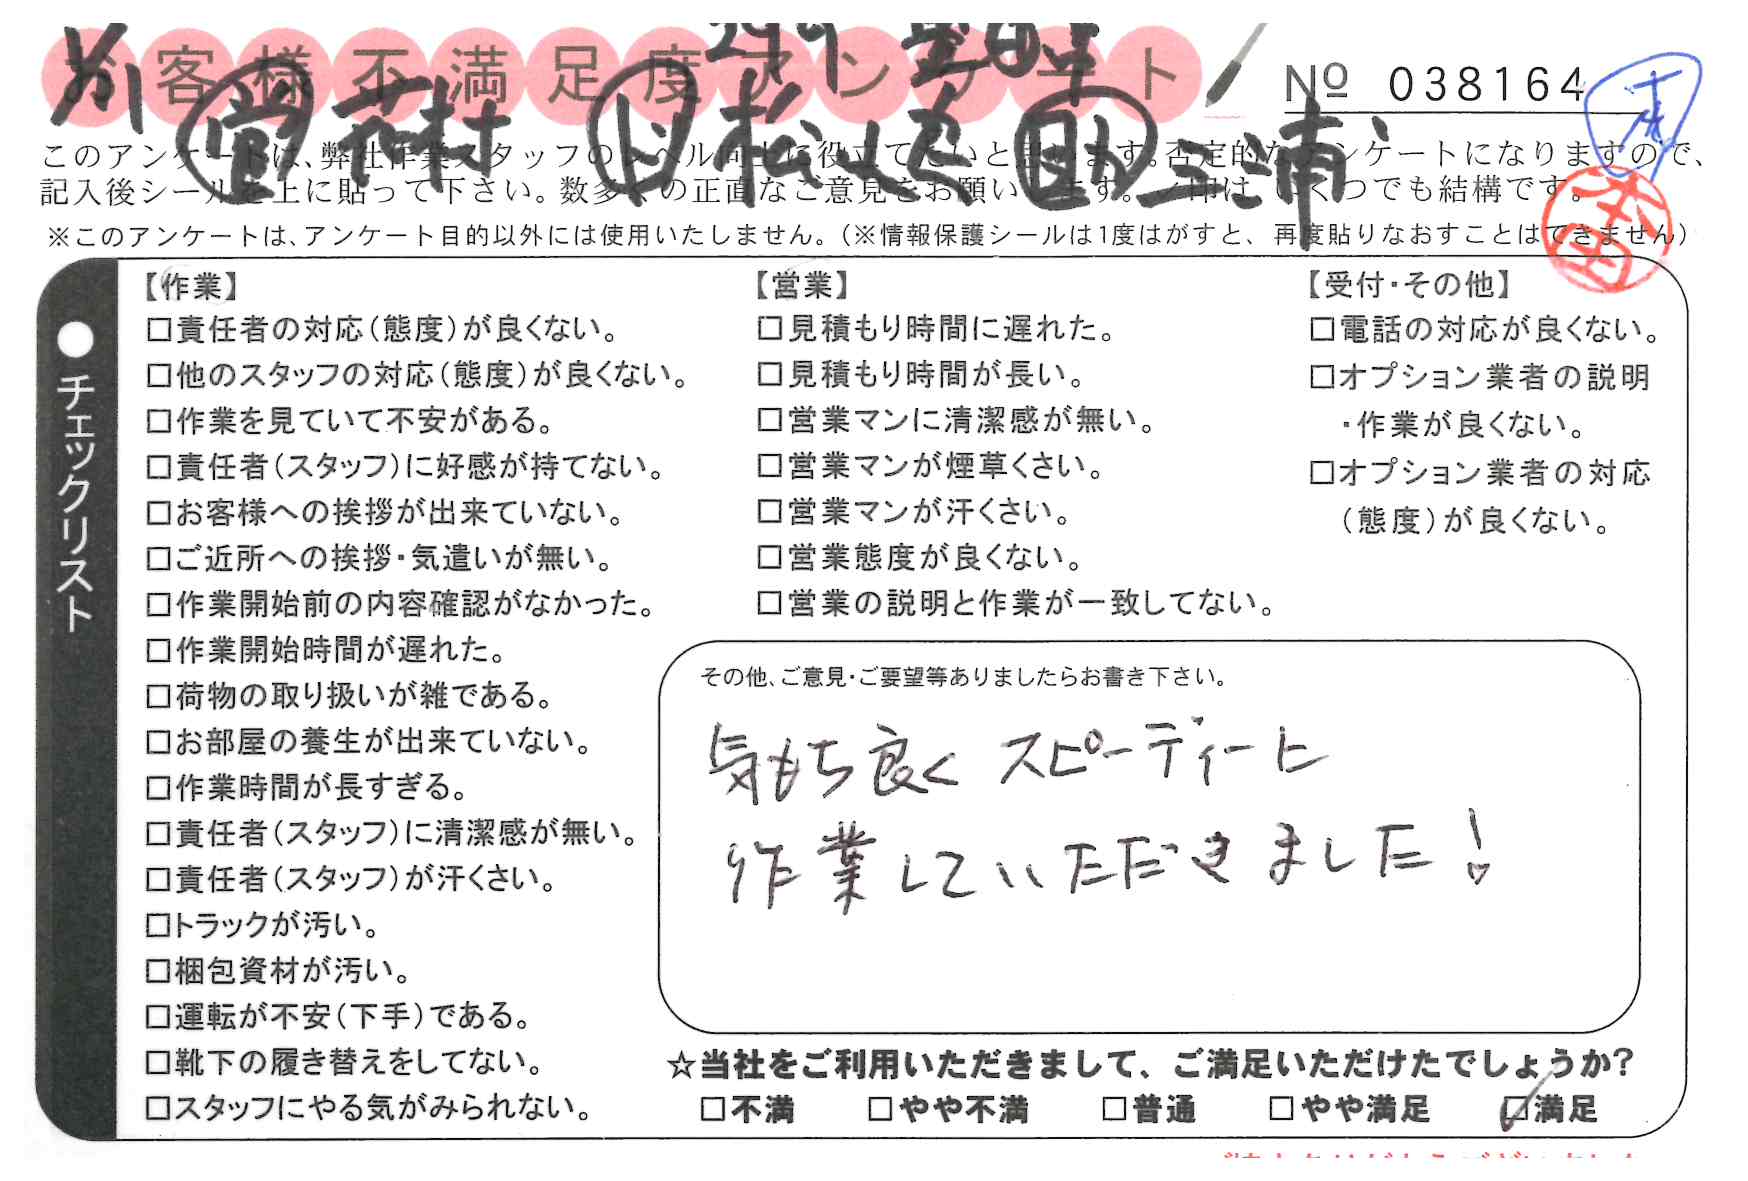 お客様不満足度アンケート
№ 038164
営 ト 松延 助 三浦
このアンケートは、弊社作業スタッフのレベル向上に役立てたいと思います。否定的なアンケートになりますので、
記入後シールを上に貼って下さい。数多くの正直なご意見をお願いします。✓印は、いくつでも結構です。
※このアンケートは、アンケート目的以外には使用いたしません。（※情報保護シールは1度はがすと、再度貼りなおすことはできません）
本田
●チェックリスト
【作業】
□責任者の対応（態度）が良くない。
□他のスタッフの対応（態度）が良くない。
□作業を見ていて不安がある。
□責任者（スタッフ）に好感が持てない。
□お客様への挨拶が出来ていない。
□ご近所への挨拶・気遣いが無い。
□作業開始前の内容確認がなかった。
□作業開始時間が遅れた。
□荷物の取り扱いが雑である。
□お部屋の養生が出来ていない。
□作業時間が長すぎる。
□責任者（スタッフ）に清潔感が無い。
□責任者（スタッフ）が汗くさい。
□トラックが汚い。
□梱包資材が汚い。
□運転が不安（下手）である。
□靴下の履き替えをしてない。
□スタッフにやる気がみられない。
【営業】
□見積もり時間に遅れた。
□見積もり時間が長い。
□営業マンに清潔感が無い。
□営業マンが煙草くさい。
□営業マンが汗くさい。
□営業態度が良くない。
□営業の説明と作業が一致してない。
【受付・その他】
□電話の対応が良くない。
□オプション業者の説明
・作業が良くない。
□オプション業者の対応
（態度）が良くない。
その他、ご意見・ご要望等ありましたらお書き下さい。
気もち良く スピーディーに
作業していただきました！
☆当社をご利用いただきまして、ご満足いただけたでしょうか？
□不満 □やや不満 □普通 □やや満足 ☑満足